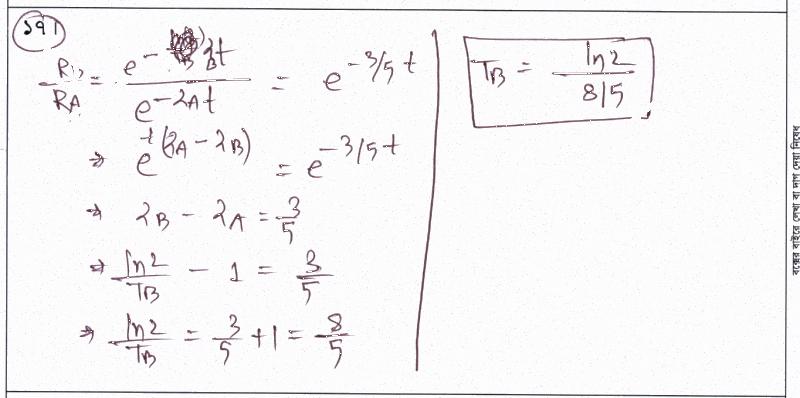 ১৭।
R_B/R_A = e^{-λ_B t}/e^{-λ_A t} = e^{-3/5 t}
⇒ e^{t(λ_A - λ_B)} = e^{-3/5 t}
⇒ λ_B - λ_A = 3/5
⇒ ln2/T_B - 1 = 3/5
⇒ ln2/T_B = 3/5 + 1 = 8/5
T_B = ln2/8/5
বক্সের বাইরে লেখা বা দাগ দেয়া নিষেধ